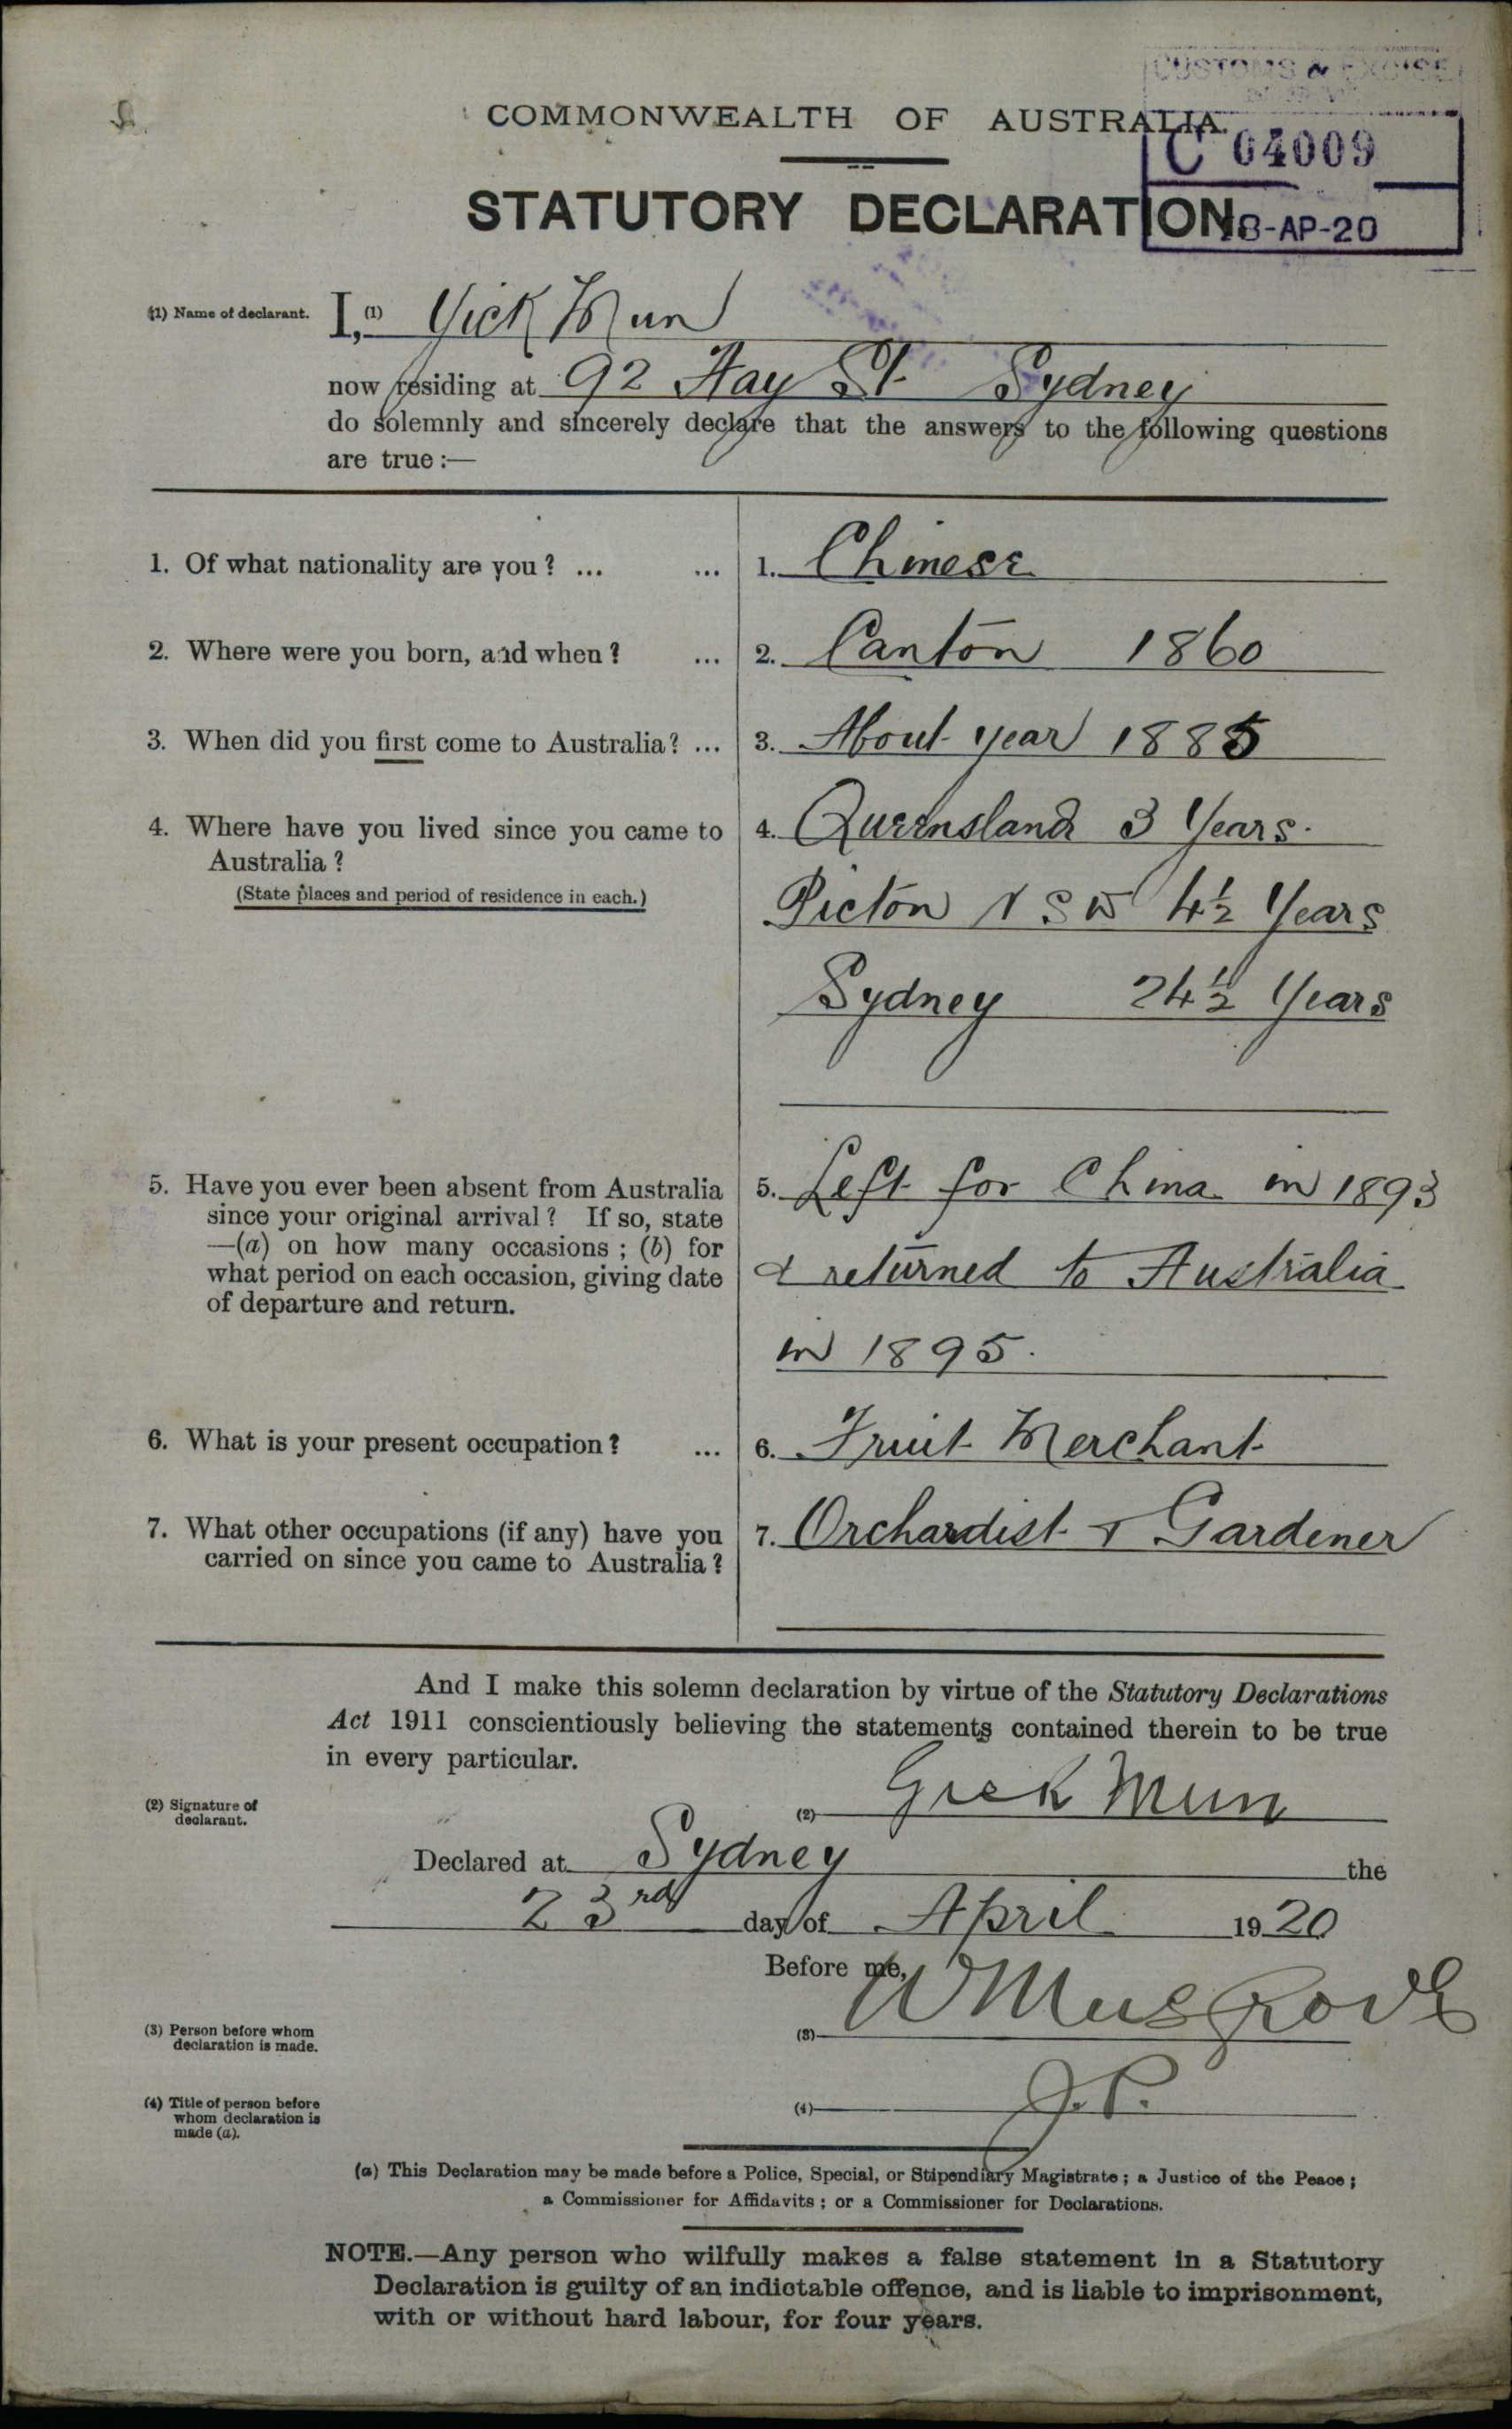 CUSTOMS & EXCISE
COMMONWEALTH OF AUSTRALIA.
C 04009
STATUTORY DECLARATION.
28-AP-20
(1) Name of declarant. I, (1) Yick Mun
now residing at 92 Hay St. Sydney
do solemnly and sincerely declare that the answers to the following questions
are true:—
1. Of what nationality are you? ... ... 1. Chinese
2. Where were you born, and when? ... 2. Canton 1860
3. When did you first come to Australia? ... 3. About year 1885
4. Where have you lived since you came to 4. Queensland 3 Years.
Australia?
(State places and period of residence in each.) Picton N S W 4½ Years
Sydney 24½ Years
5. Have you ever been absent from Australia 5. Left for China in 1893
since your original arrival? If so, state
—(a) on how many occasions; (b) for
what period on each occasion, giving date & returned to Australia
of departure and return.
in 1895.
6. What is your present occupation? ... 6. Fruit Merchant
7. What other occupations (if any) have you 7. Orchardist & Gardener
carried on since you came to Australia?
And I make this solemn declaration by virtue of the Statutory Declarations
Act 1911 conscientiously believing the statements contained therein to be true
in every particular.
(2) Signature of (2) Gick Mun
declarant.
Declared at Sydney the
23rd day of April 1920
Before me,
(3) Person before whom (3) W Musgrove
declaration is made.
(4) Title of person before (4) J.P.
whom declaration is
made (a).
(a) This Declaration may be made before a Police, Special, or Stipendiary Magistrate; a Justice of the Peace;
a Commissioner for Affidavits; or a Commissioner for Declarations.
NOTE.—Any person who wilfully makes a false statement in a Statutory
Declaration is guilty of an indictable offence, and is liable to imprisonment,
with or without hard labour, for four years.